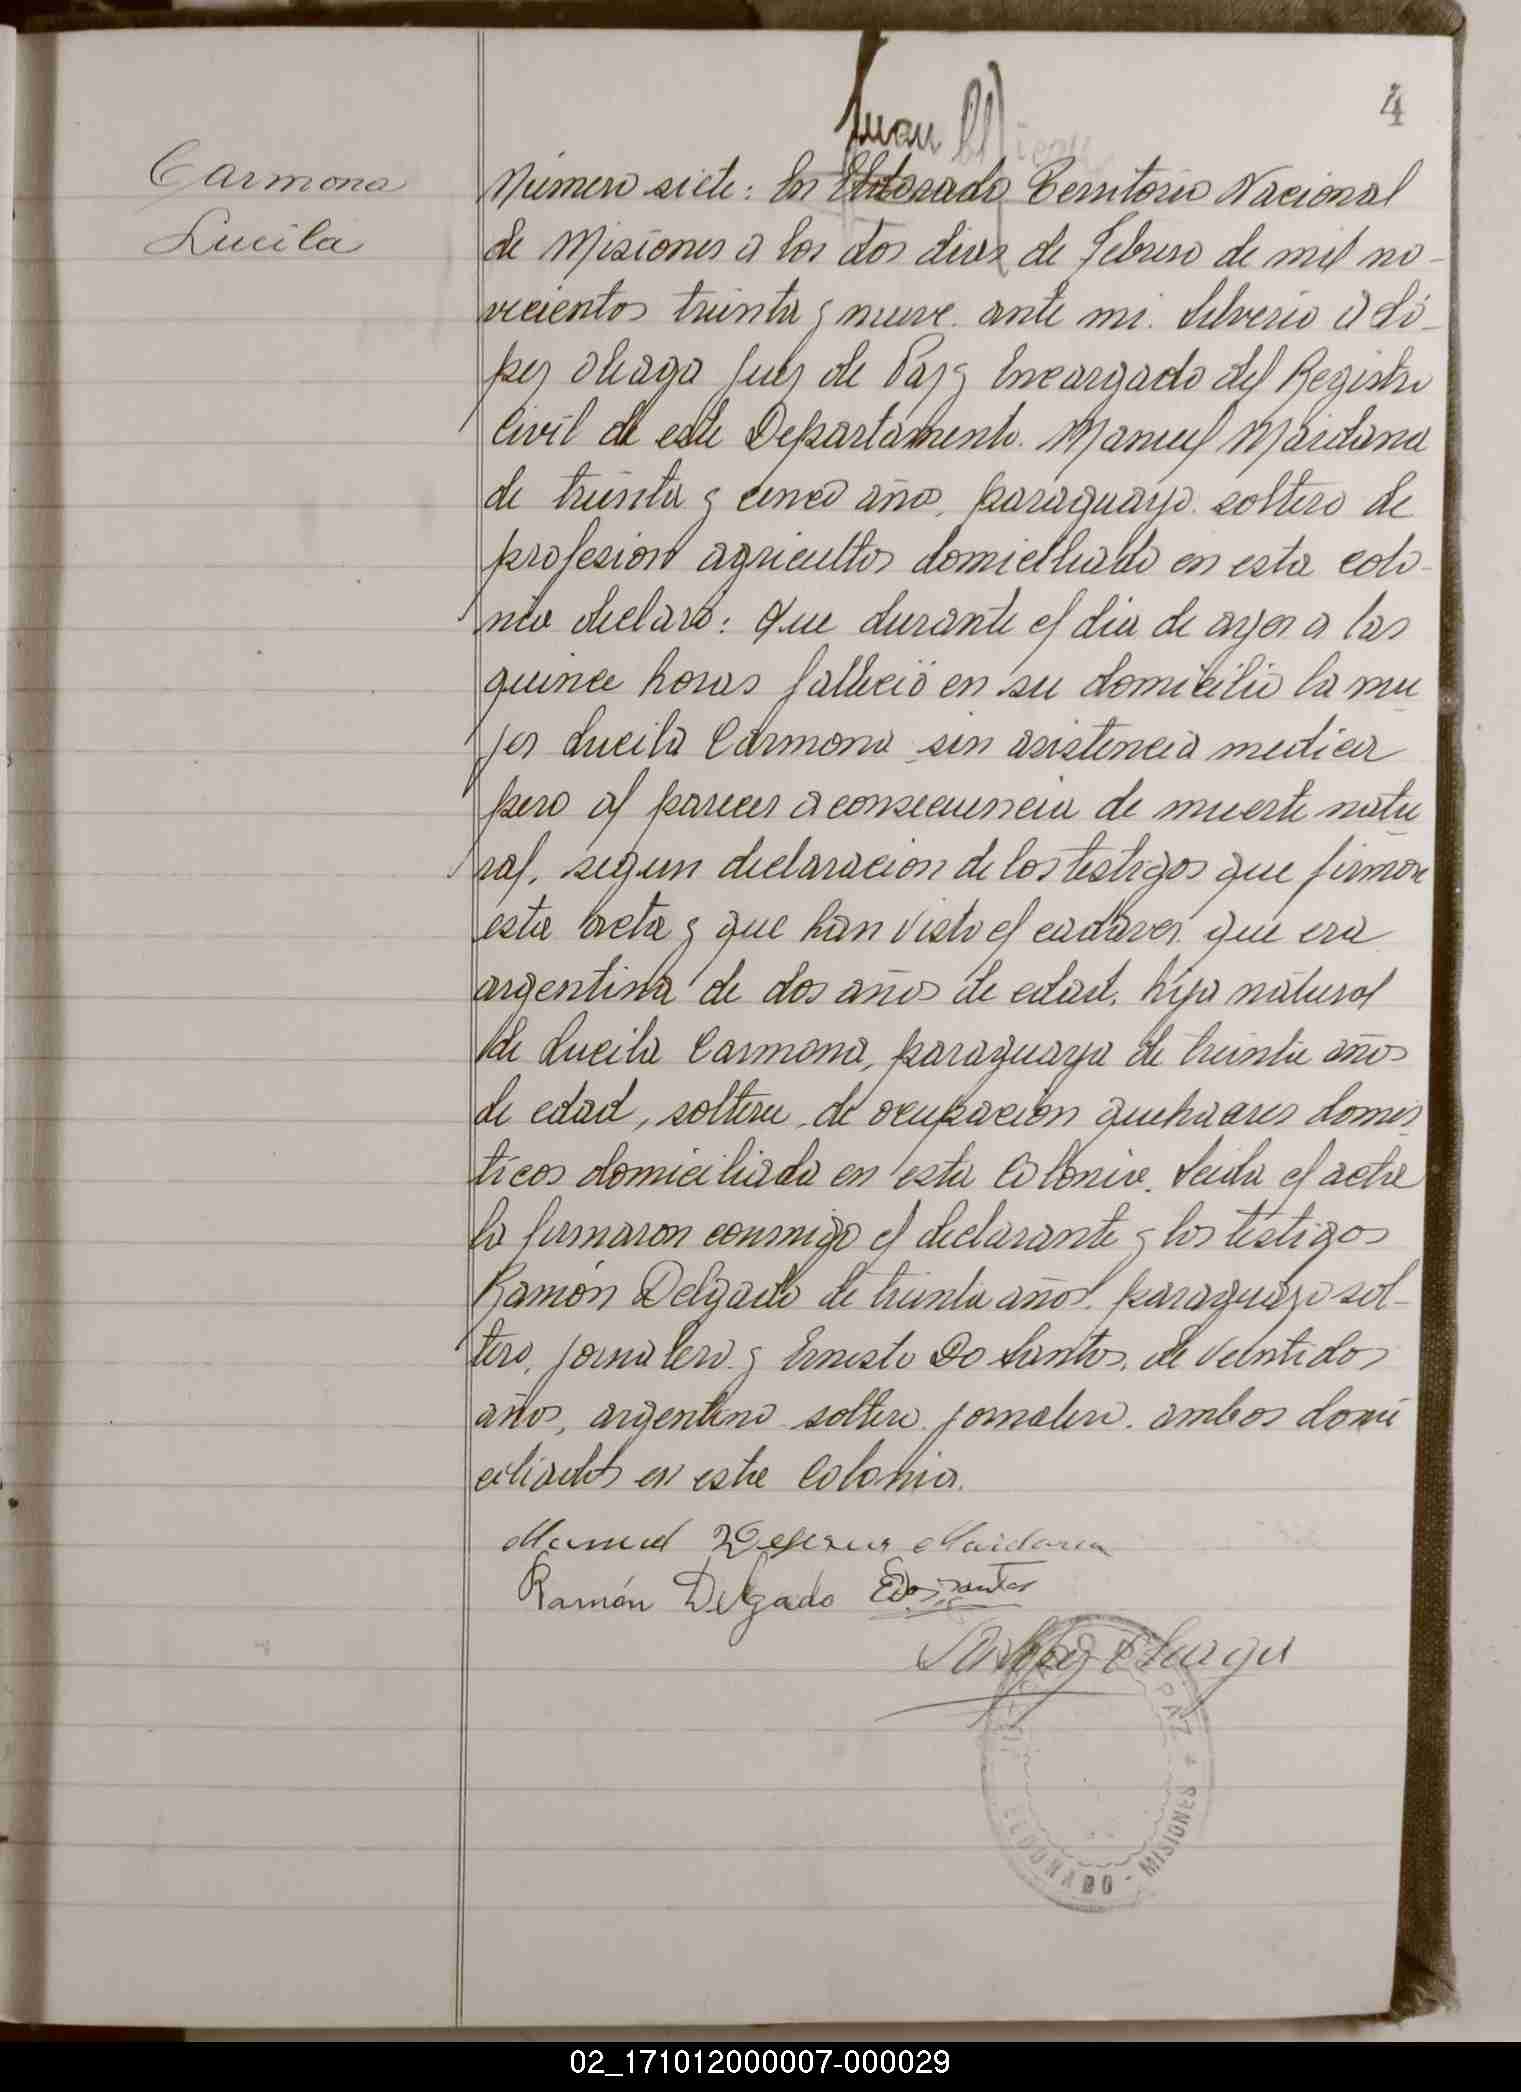 4
Juan
Carmona
Lucila
Número siete: En Eldorado Territorio Nacional
de Misiones a los dos dias de Febrero de mil no-
vecientos treinta y nueve. ante mi. Silverio A Ló-
pez Aliaga Juez de Paz y Encargado del Registro
Civil de este Departamento. Manuel Maidana
de treinta y cinco años, paraguayo. soltero de
profesion agricultor domiciliado en esta colo-
nia declaró: Que durante el dia de ayer a las
quince horas falleció en su domicilio la mu
jer Lucila Carmona sin asistencia medica
pero al parecer a consecuencia de muerte natu
ral, segun declaracion de los testigos que firman
esta acta y que han visto el cadaver. que era
argentina de dos años de edad, hija natural
de Lucila Carmona, paraguaya de treinta años
de edad, soltera, de ocupacion quehaceres domes
ticos domiciliada en esta Colonia. Leida el acta
la firmaron conmigo el declarante y los testigos
Ramón Delgado de treinta años. paraguayo sol-
tero, jornalero. y Ernesto Do Santos. de veintidos
años, argentino soltero. jornalero. ambos domi
ciliados en esta Colonia.
Manuel Maidana
Ramón Delgado EDosantos
PAZ
ELDORADO - MISIONES
02_171012000007-000029